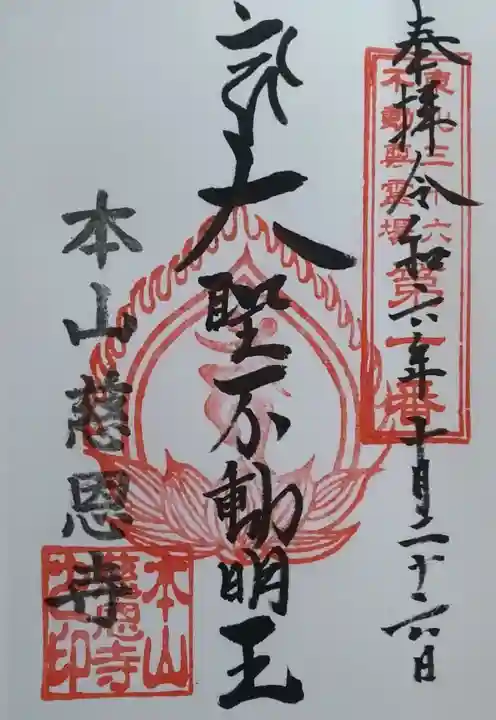 奉拝 令和六年十月二十六日
東北三十六
不動尊霊場
第一番
大聖不動明王
本山慈恩寺
本山
慈恩寺
之印